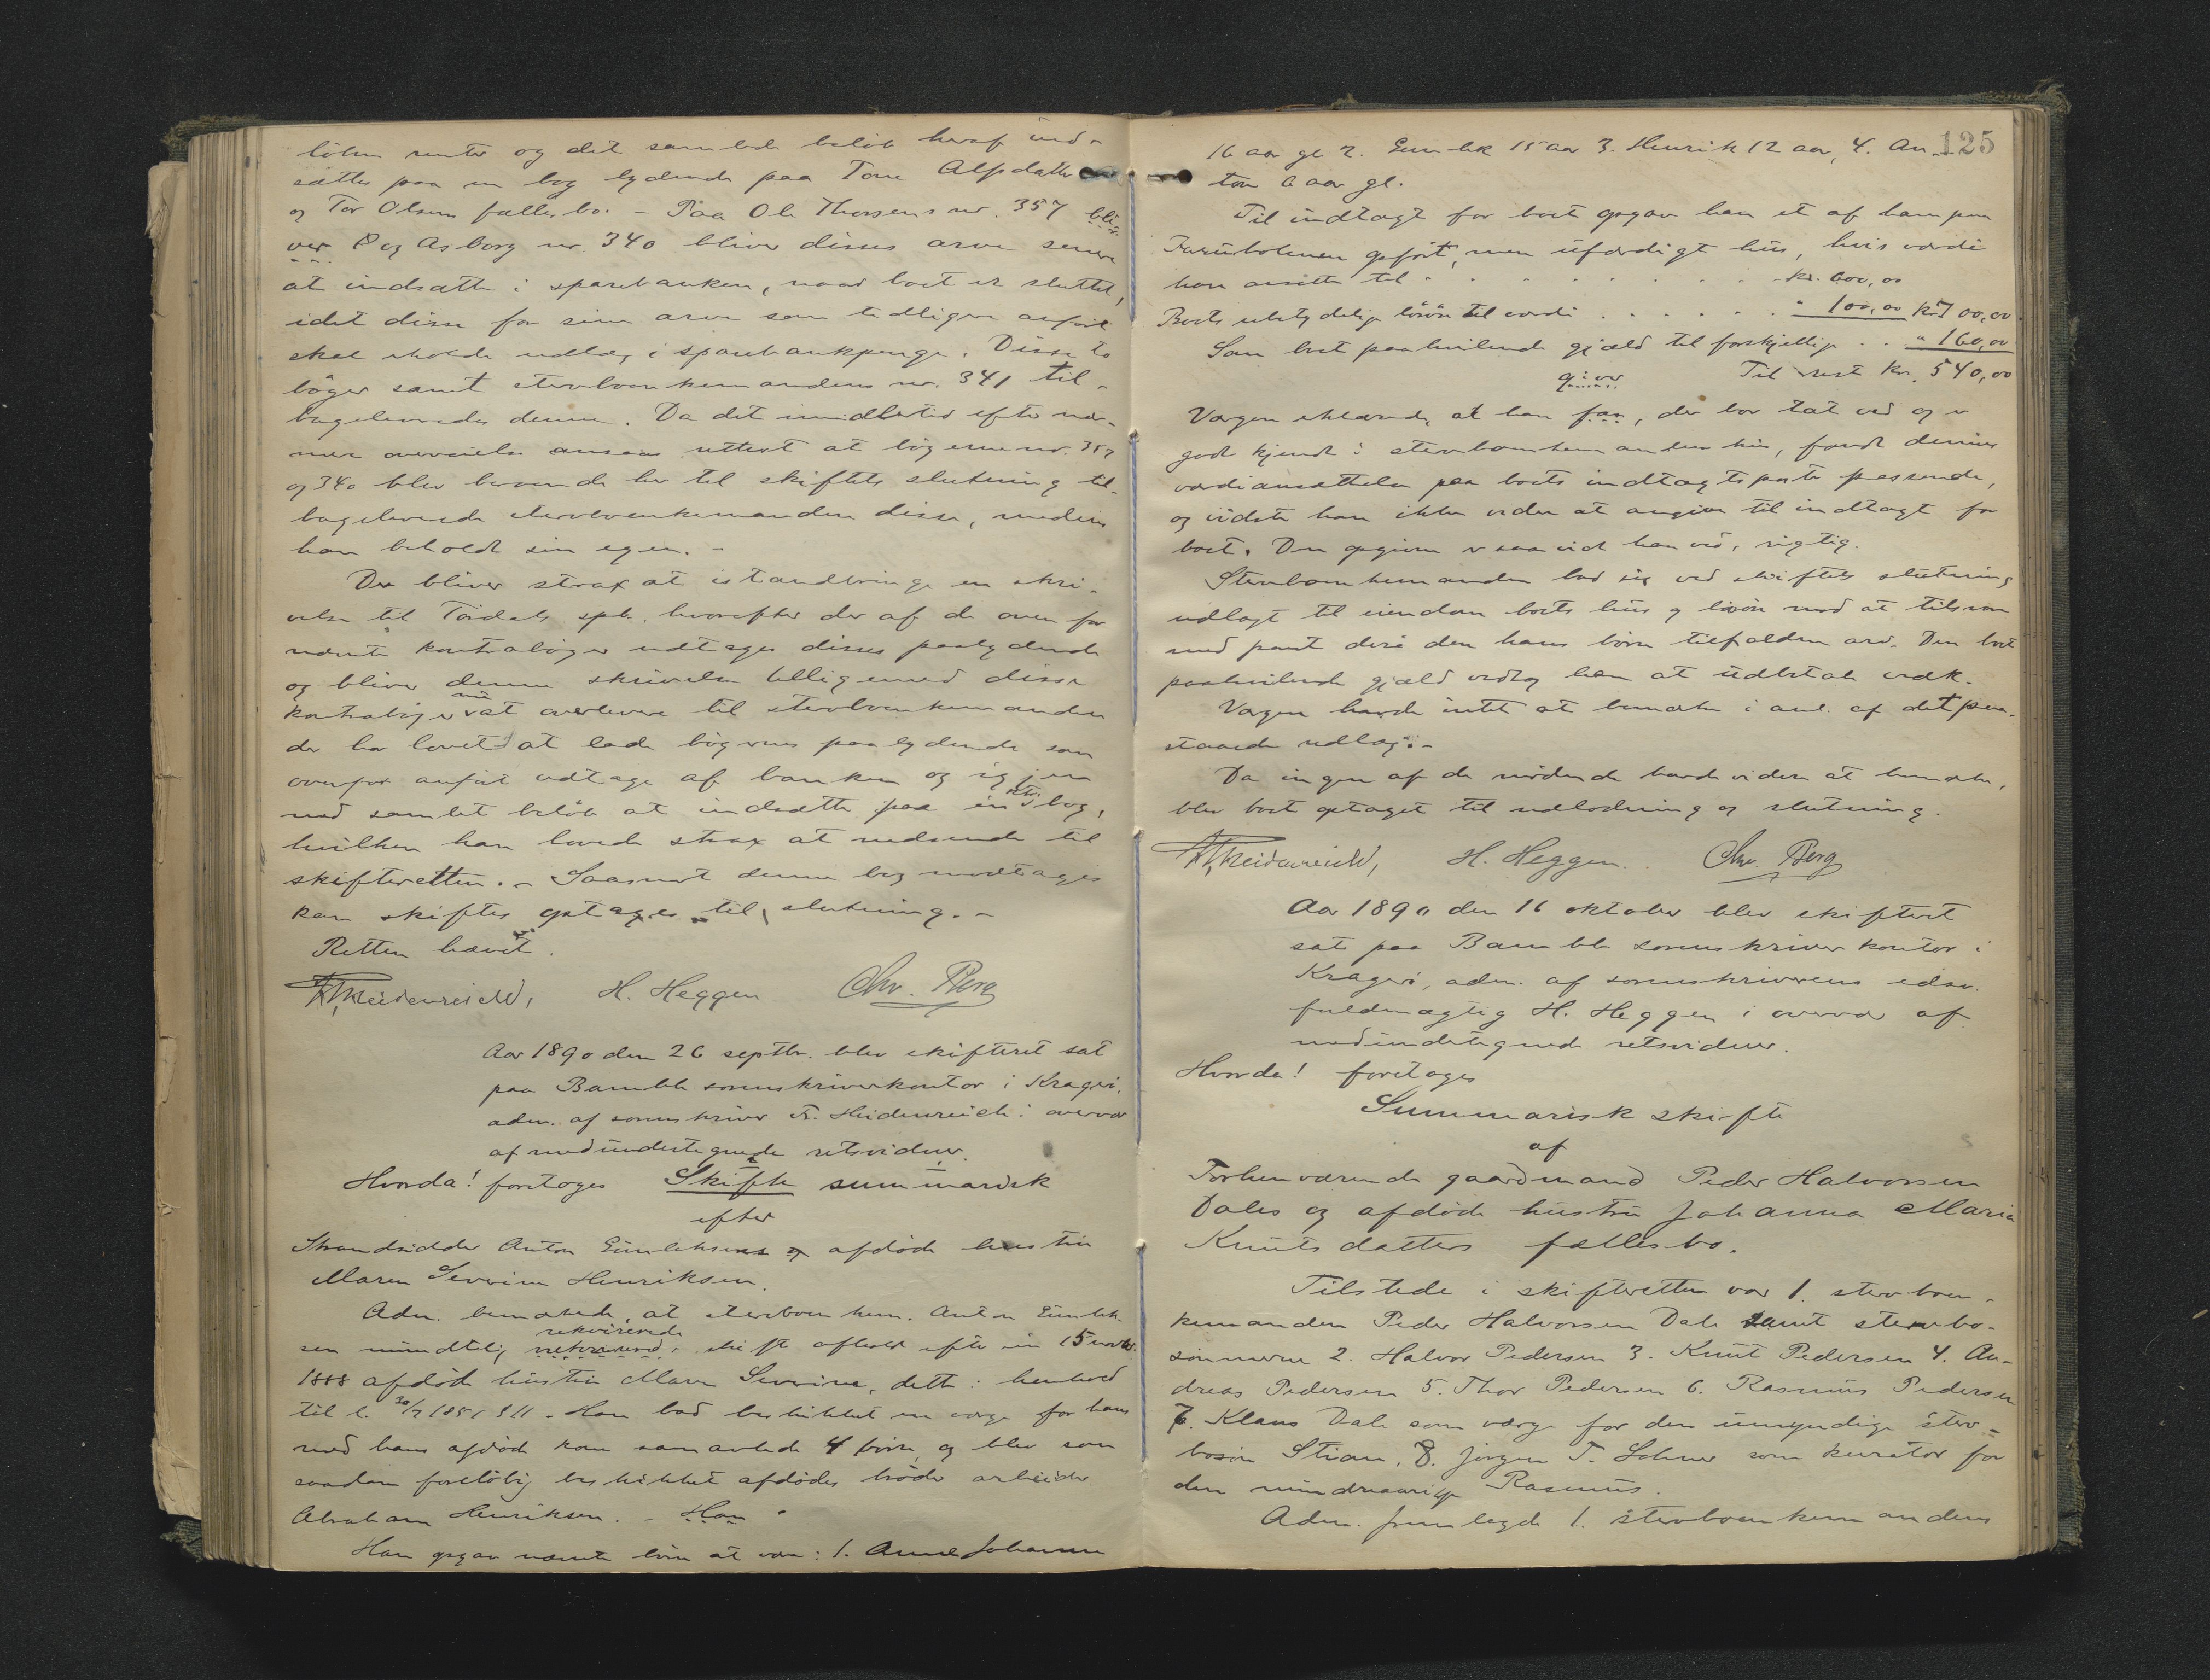 löbne renter og det samlede beløb heraf ind-
sættes paa en bog lydende paa Tone Alfsdatter
og Tor Olsens fællesbo. – Paa Ole Thorsens nr. 357 bli-
ver O og Asborg nr. 340 bliver disses arve senere
at indsætte i sparebanken, naar boet er sluttet,
idet disse for sine arve som tidligere anført
skal erholde udlæg i sparebankpenge. Disse to
bøger samt stervboenkemandens nr. 341 til-
bageleveredes denne. Da det imidlertid efter nær-
mere overveielse ansaas rettest at bøgerne nr. 357
og 340 blev beroende her til skiftets slutning til-
bageleverede stervboenkemanden disse, medens
han beholdt sin egen. –
Der bliver strax at istandbringe en skri-
velse til Tördals spb. hvorefter der af de oven for
nævnte kontrabøger udtages disses paalydende
og bliver denne skrivelse tilligemed disse
kontrabøger nu at overlevere til stervboenkemanden
der har lovet at lade bøgernes paalydende som
ovenfor anført udtage af banken og igjen
med samlet beløb at indsætte paa én ny bog,
hvilken han lovede strax at nedsende til
skifteretten. – Saasnart denne bog modtages
kan skiftet optages til slutning. –
Retten hævet.
F. Heidenreich, H. Heggen Chr. Berg
Aar 1890 den 26 septbr. blev skifteret sat
paa Bamble sorenskriverkontor i Kragerø,
adm. af sorenskriver F. Heidenreich i overvær
af medundertegnede retsvidner.
Hvorda! foretoges Skifte summarisk
efter
Strandsidder Anton Gunleksens afdøde hustru
Maren Severine Henriksen.
Adm. bemærkede, at stervboenkem. Anton Gunlek-
rekvirerede
sen mundtlig skifte afholdt efter sin 15
1888 afdøde hustru Maren Severine, dette i henhold
til l. 30/7 1851 § 11. – Han bad beskikket en værge for hans
med hans afdøde kone sammenavlede 4 børn, og blev som
saadan foreløbig beskikket afdødes broder arbeider
Abraham Henriksen. – Han
Han opgav nævnte børn at være: 1. Anne Johanne
125
16 aar gl. 2. Gunlek 15 aar 3. Henrik 12 aar, 4. An-
ton 6 aar gl.
Til indtægt for boet opgav han et af ham paa
Furuholmen opført, men ufærdigt hus, hvis værdi
han ansatte til . . . . . . . . kr. 600,00
Boets ubetydelige løsøre til værdi . . . . . . " 100,00 kr. 700,00
Som boet paahvilende gjæld til forskjellige . . . " 160,00
giver Til rest kr. 540,00
Værgen erklærede, at han fan, der bor tæt ved og er
godt kjendt i stervboenkemandens hus, fandt dennes
værdiansættelse paa boets indtægtsposter passende,
og vidste han ikke videre at angive til indtægt for
boet. Den opgivne er saavidt han ved, rigtig.
Stervboenkemanden bad sig ved skiftets slutning
udlagt til eiendom boets hus og løsøre mod at tilsvare
med pant deri den hans børn tilfaldne arv. Den boet
paahvilende gjæld vedtog han at udbetale vedk.
Værgen havde intet at bemærke i anl. af det paa-
staaede udlæg. –
Da ingen af de mødende havde videre at bemærke,
blev boet optaget til udlodning og slutning.
F. Heidenreich, H. Heggen. Chr. Berg
Aar 1890 den 16 oktober blev skifteret
sat paa Bamble sorenskriverkontor i
Kragerø, adm. af sorenskriverens edsv.
fuldmægtig H. Heggen i overvær af
medundertegnede retsvidner.
Hvorda! foretoges
Summarisk skifte
af
Forhenværende gaardmand Peder Halvorsen
Dales og afdøde hustru Johanna Maria
Knutsdatters fællesbo.
Tilstede i skifteretten var 1. stervboen-
kemanden Peder Halvorsen Dale samt stervbo-
sønnerne 2. Halvor Pedersen 3. Knut Pedersen 4. An-
dreas Pedersen 5. Thor Pedersen 6. Rasmus Pedersen
7. Klaus Dale som værge for den umyndige sterv-
bosøn Stian, 8. Jørgen T. som kurator for
den mindreaarige Rasmus.
Adm. fremlagde 1. stervboenkemandens